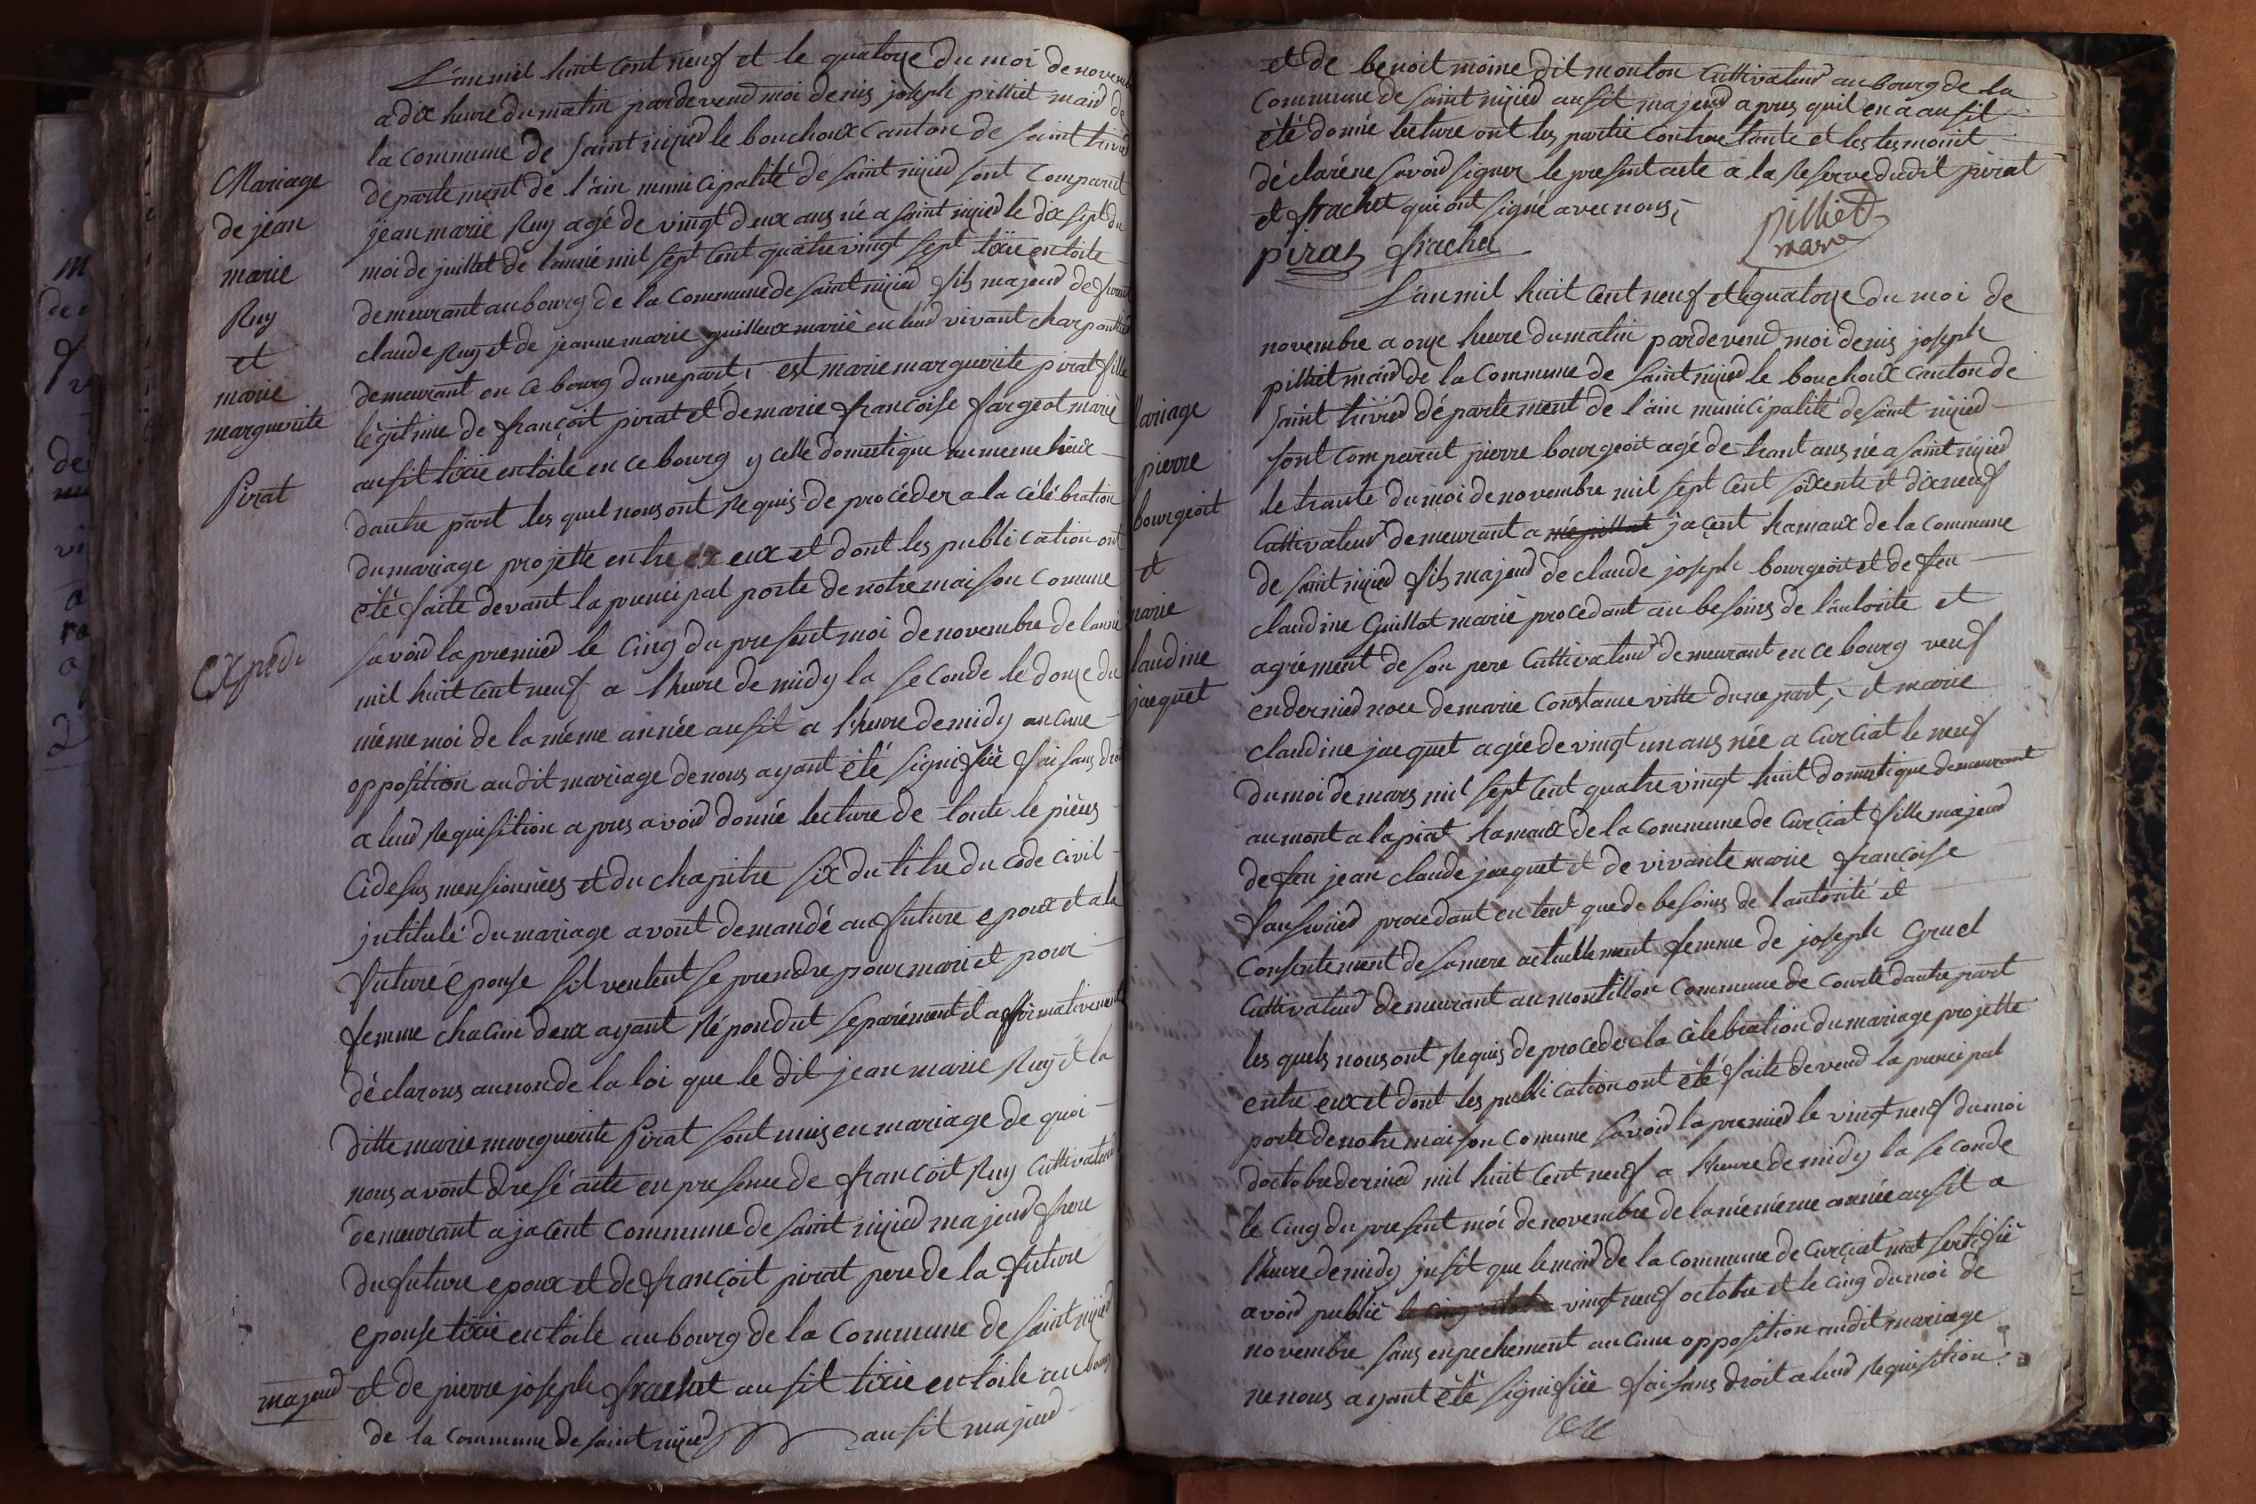 L'an mil huit cent neuf et le quatorze du moi de novem
a dix heure du matin pardevend moi denis joseph pilliet maid de
la commune de saint nizied le bouchoux canton de saint trivied
departement de l'ain municipalité de saint nizied sont comparut
jean marie Ruy agé de vingt deux ans né a saint nizied le dix sept du
moi de juillet de l'anné mil sept cent quatre vingt sept tixie en toile
demeurant au bourg de la commune de saint nizied fils majeud de
claude Ruy et de jeanne marie guilleux marié en leud vivant charpentied
demeurant en ce bourg dune part, est marie marguerite pirat fille
légitime de françoit pirat et de marie françoise fargeot marié
ausit tixie en toile en ce bourg y celle domestique au meme
dautre part les quel nous ont Requis de procéder a la célébration
du mariage projette entre eux et dont les publication ont
été faite devant la principal porte de notre maison comune
savoid la premied le cinq du present moi de novembre de l'anné
mil huit cent neuf a l'heure de midy la seconde le douze du
même moi de la méme année ausit a l'heure de midy aucune
opposition audit mariage de nous ayant été signifiié faisans droit
a leud Requisition apres avoid donné lecture de toute le pièces
cidesus mensionnées et du chapitre six du titre du code civil
jntitulé du mariage avont demandé au future epoux et a la
future épouse sil veulent se prendre pour mari et pour
femme chacun deux ayant Répondut separément et affirmativement
déclarons au non de la loi que le dit jean marie Ruy et la
ditte marie marguerite Pirat sont unis en mariage de quoi
nous avont dresé acte en presence de françoit Ruy cultivateud
demeurant a jacent commune de saint nizied majeud frere
du future epoux et de françoit pirat pere de la future
epouse tixie en toile au bourg de la commune de saint nizied
et de pierre joseph frachet ausit tixie en toile au bourg
de la commune de saint nizied ausit majeud
Mariage
de jean
marie
Ruy
et
marie
marguerite
Pirat
Expédi
majeud
et de benoit moine dit monton cultivateud au bourg de la
commune de saint nizied ausit majeud apres quil en a ausit
été donné lecture ont les partie contractante et les tesmoint
déclaré ne savoid signer le present acte a la Reserve dudit pirat
et frachet qui ont signé avec nous,
pirat frachet
pilliet
maire
L'an mil huit cent neuf et le quatorze du moi de
novembre a onze heure du matin pardevend moi denis joseph
pilliet maid de la commune de saint nizied le bouchoux canton de
saint trivied département de l'ain municipalité de saint nizied
sont comparut pierre bourgeoit agé de trant ans né a saint nizied
le trante du moi de novembre mil sept cent soixente et dix neuf
cultivateud demeurant a jaçent hamaux de la commune
de saint nizied fils majeud de claude joseph bourgeoit et de feu
claudine Guillot marié procedant au besoins de l'autorite et
agrément de son pere cultivateud demeurant en ce bourg veuf
en dernied noce de marie constance vitte dune part, et marie
claudine jacquet agée de vingt un ans née a Curciat le neuf
du moi de mars mil sept cent quatre vingt huit domestique demeurant
au mont a la piat hamaux de la commune de Curciat fille majeud
de feu jean claude jacquet et de vivante marie françoise
procedant en tent que de besoins de l'autorité et
consentement de sa mere actuellement femme de joseph Gruel
cultivateud demeurant au montillon commune de courte dautre part
les quels nous ont Requis de proceder la célebration du mariage projette
entre eux et dont les publication ont été faite devend la principal
porte de notre maison comune savoid la premied le vingt neuf du moi
doctobre dernied mil huit cent neuf a l'heure de midy la seconde
le cinq du present moi de novembre de la mémeme année ausit a
l'heure de midy jnsit que le maid de la commune de Curciat mat sertifié
avoid publié le cinq octobre vingt neuf octobre et le cinq du moi de
novembre sans enpechement aucune opposition audit mariage
ne nous ayant été signifiée faisans droit a leud Requisition
ariage
pierre
bourgeoit
et
marie
laudine
jacquet